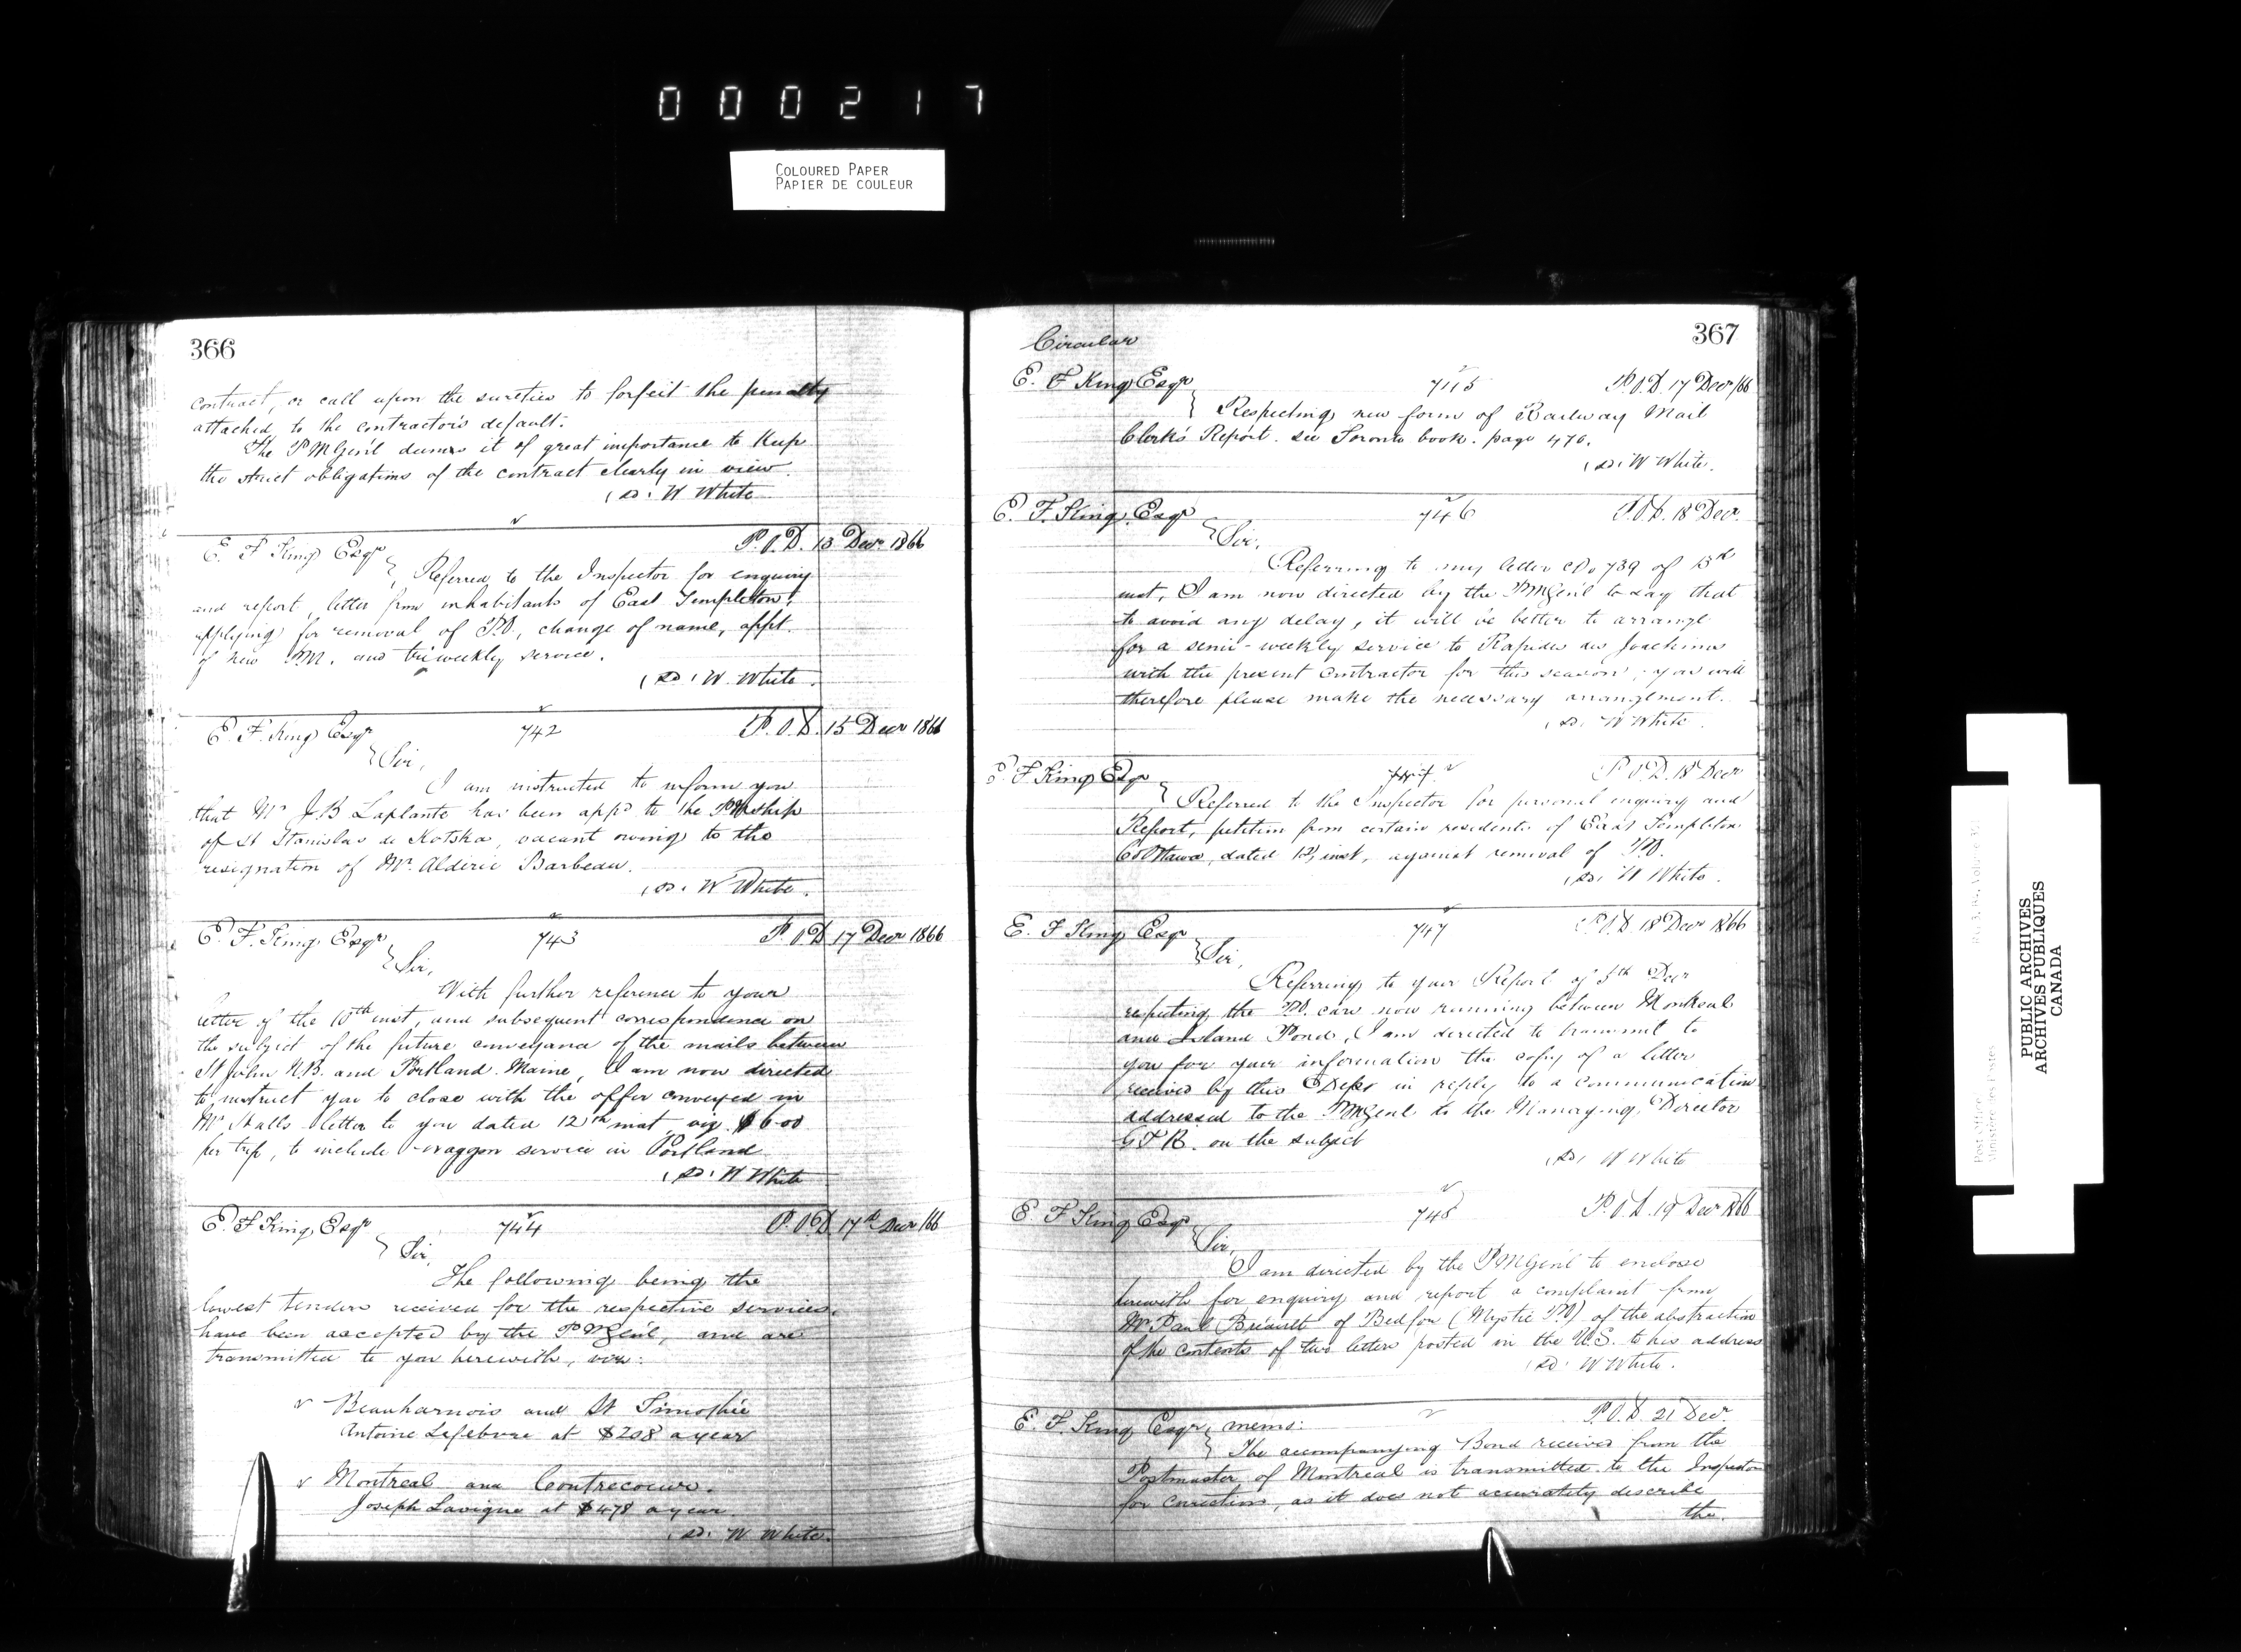 000217
COLOURED PAPER
PAPIER DE COULEUR
366
contract, or call upon the sureties to forfeit the penalty
attached to the contractors default.
The PMGenl deems it of great importance to keep
the strict obligations of the contract clearly in view.
(sd) W White
E. F King Esqr P.O.D. 13 Decr 1866
Referred to the Inspector for enquiry
and report, letter from inhabitants of East Templeton,
applying for removal of P.O, change of name, appt.
of new P.M. and triweekly service.
(sd) W White.
E. F. King Esqr 742 P.O.D. 15 Decr 1866
Sir,
I am instructed to inform you
that Mr J.B Laplante has been appd to the PMship
of St Stanislas de Kotska, vacant owing to the
resignation of Mr. Alderic Barbeau.
(sd) W White.
E. F. King Esqr 743 P.O.D 17 Decr 1866
Sir,
With further reference to your
letter of the 10th inst, and subsequent correspondence on
the subject of the future conveyance of the mails between
St John N.B. and Portland Maine, I am now directed
to instruct you to close with the offer conveyed in
Mr letter to you dated 12th inst viz $6.00
per trip, to include waggon service in Portland
(sd) W White
E. F King Esqr 744 P.O.D 17th Decr /66
Sir,
The following being the
lowest tenders received for the respective services,
have been accepted by the PMGenl, and are
transmitted to you herewith, viz:
Beauharnois and St Timothée
Antoine Lefebvre at $208 a year
Montreal and Contrecoeur.
Joseph Lavigne at $478 a year
(sd) W. White.
Circular 367
E. F King Esqr 745 P.O.D. 17 Decr /66
Respecting new form of Railway Mail
Clerk's Report. see Toronto book. page 476.
(sd) W White.
E. F. King Esqr 746 P.O.D. 18 Decr.
Sir,
Referring to my letter No 739 of 13th
inst, I am now directed by the PMGenl to say that
to avoid any delay, it will be better to arrange
for a semi-weekly service to Rapides des Joachims
with the present contractor for this season; you will
therefore please make the necessary arrangement.
(sd) W White.
E F King Esqr P.O.D. 18 Decr
Referred to the Inspector for personal enquiry and
Report, petition from certain residents of East Templeton
Co Ottawa, dated 12, inst, against removal of P.O.
(sd) W White.
E. F King Esqr 747 P.O.D 18 Decr 1866
Sir,
Referring to your Report of 5th Decr
respecting the P.O. cars now running between Montreal
and Island Pond, I am directed to transmit to
you for your information the copy of a letter
received by this Dept in reply to a communication
addressed to the PMGenl to the Managing Director
G.T.R. on the subject
(sd) W White
E. F King Esqr 748 P.O.D. 19 Decr 1866
Sir,
I am directed by the PMGenl to enclose
herewith for enquiry and report a complaint from
Mr Paul of Bedford (Mystic P.O) of the abstraction
of the contents of two letters posted in the U.S. to his address
(sd) W White.
E. F. King Esqr, memo: P.O.D. 21 Decr.
The accompanying Bond received from the
Postmaster of Montreal is transmitted to the Inspector
for correction, as it does not accurately describe
the
PUBLIC ARCHIVES
ARCHIVES PUBLIQUES
CANADA